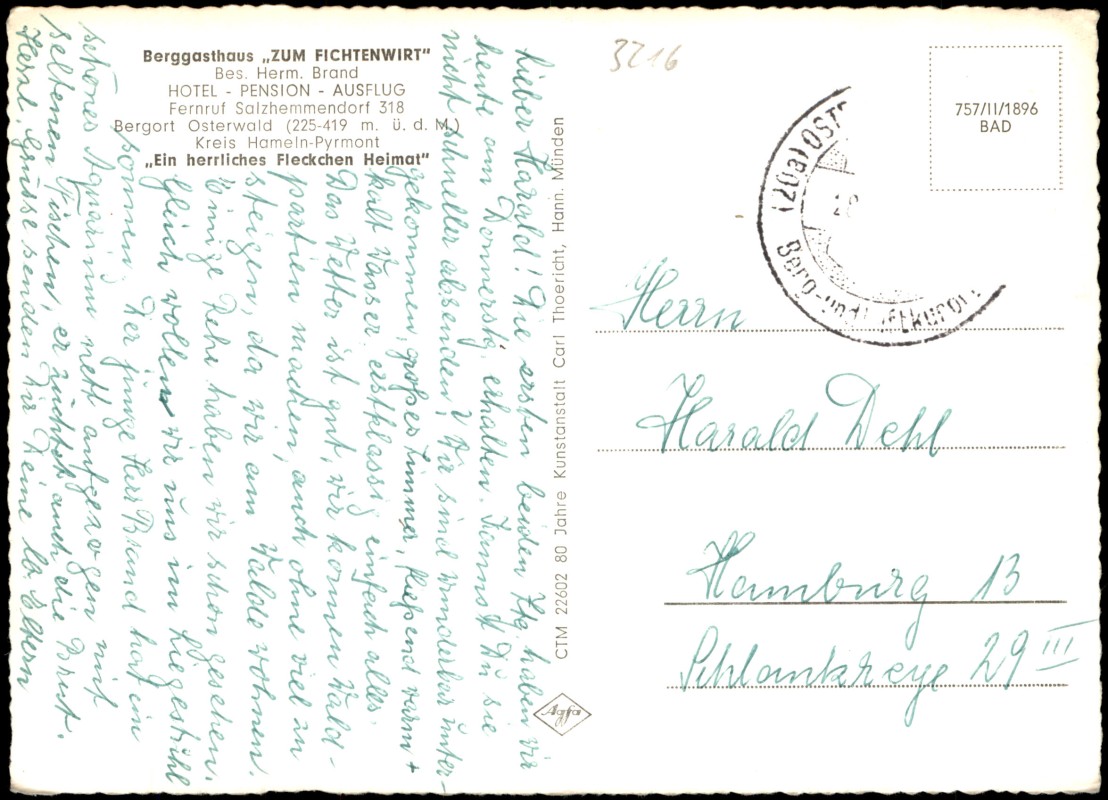 Berggasthaus „ZUM FICHTENWIRT"
Bes. Herm. Brand
HOTEL - PENSION - AUSFLUG
Fernruf Salzhemmendorf 318
Bergort Osterwald (225-419 m. ü. d. M.)
Kreis Hameln-Pyrmont
„Ein herrliches Fleckchen Heimat"
Lieber Harald! Die ersten beiden Ztg. haben wir
heute am Donnerstg. erhalten. Kannst Du sie
nicht schneller absenden? Wir sind wunderbar unter-
gekommen, großes Zimmer, fließend warm +
kalt Wasser, erstklassig einfach alles.
Das Wetter ist gut, wir können Wald-
partien machen, auch ohne viel zu
steigen, da wir am Walde wohnen.
Einige Rehe haben wir schon gesehen.
Gleich wollen wir uns im Liegestuhl
sonnen. Der junge Herr Brand hat ein
schönes Aquarium nett aufgezogen mit
seltenen Fischen, er züchtet auch die Brut.
Herzl. Grüsse senden Dir Deine lb. Eltern
CTM 22602 80 Jahre Kunstanstalt Carl Thoericht, Hann. Münden
Agfa
3216
(20a) OST
Berg-und
757/II/1896
BAD
Herrn
Harald Dehl
Hamburg 13
Schlankreye 29 III